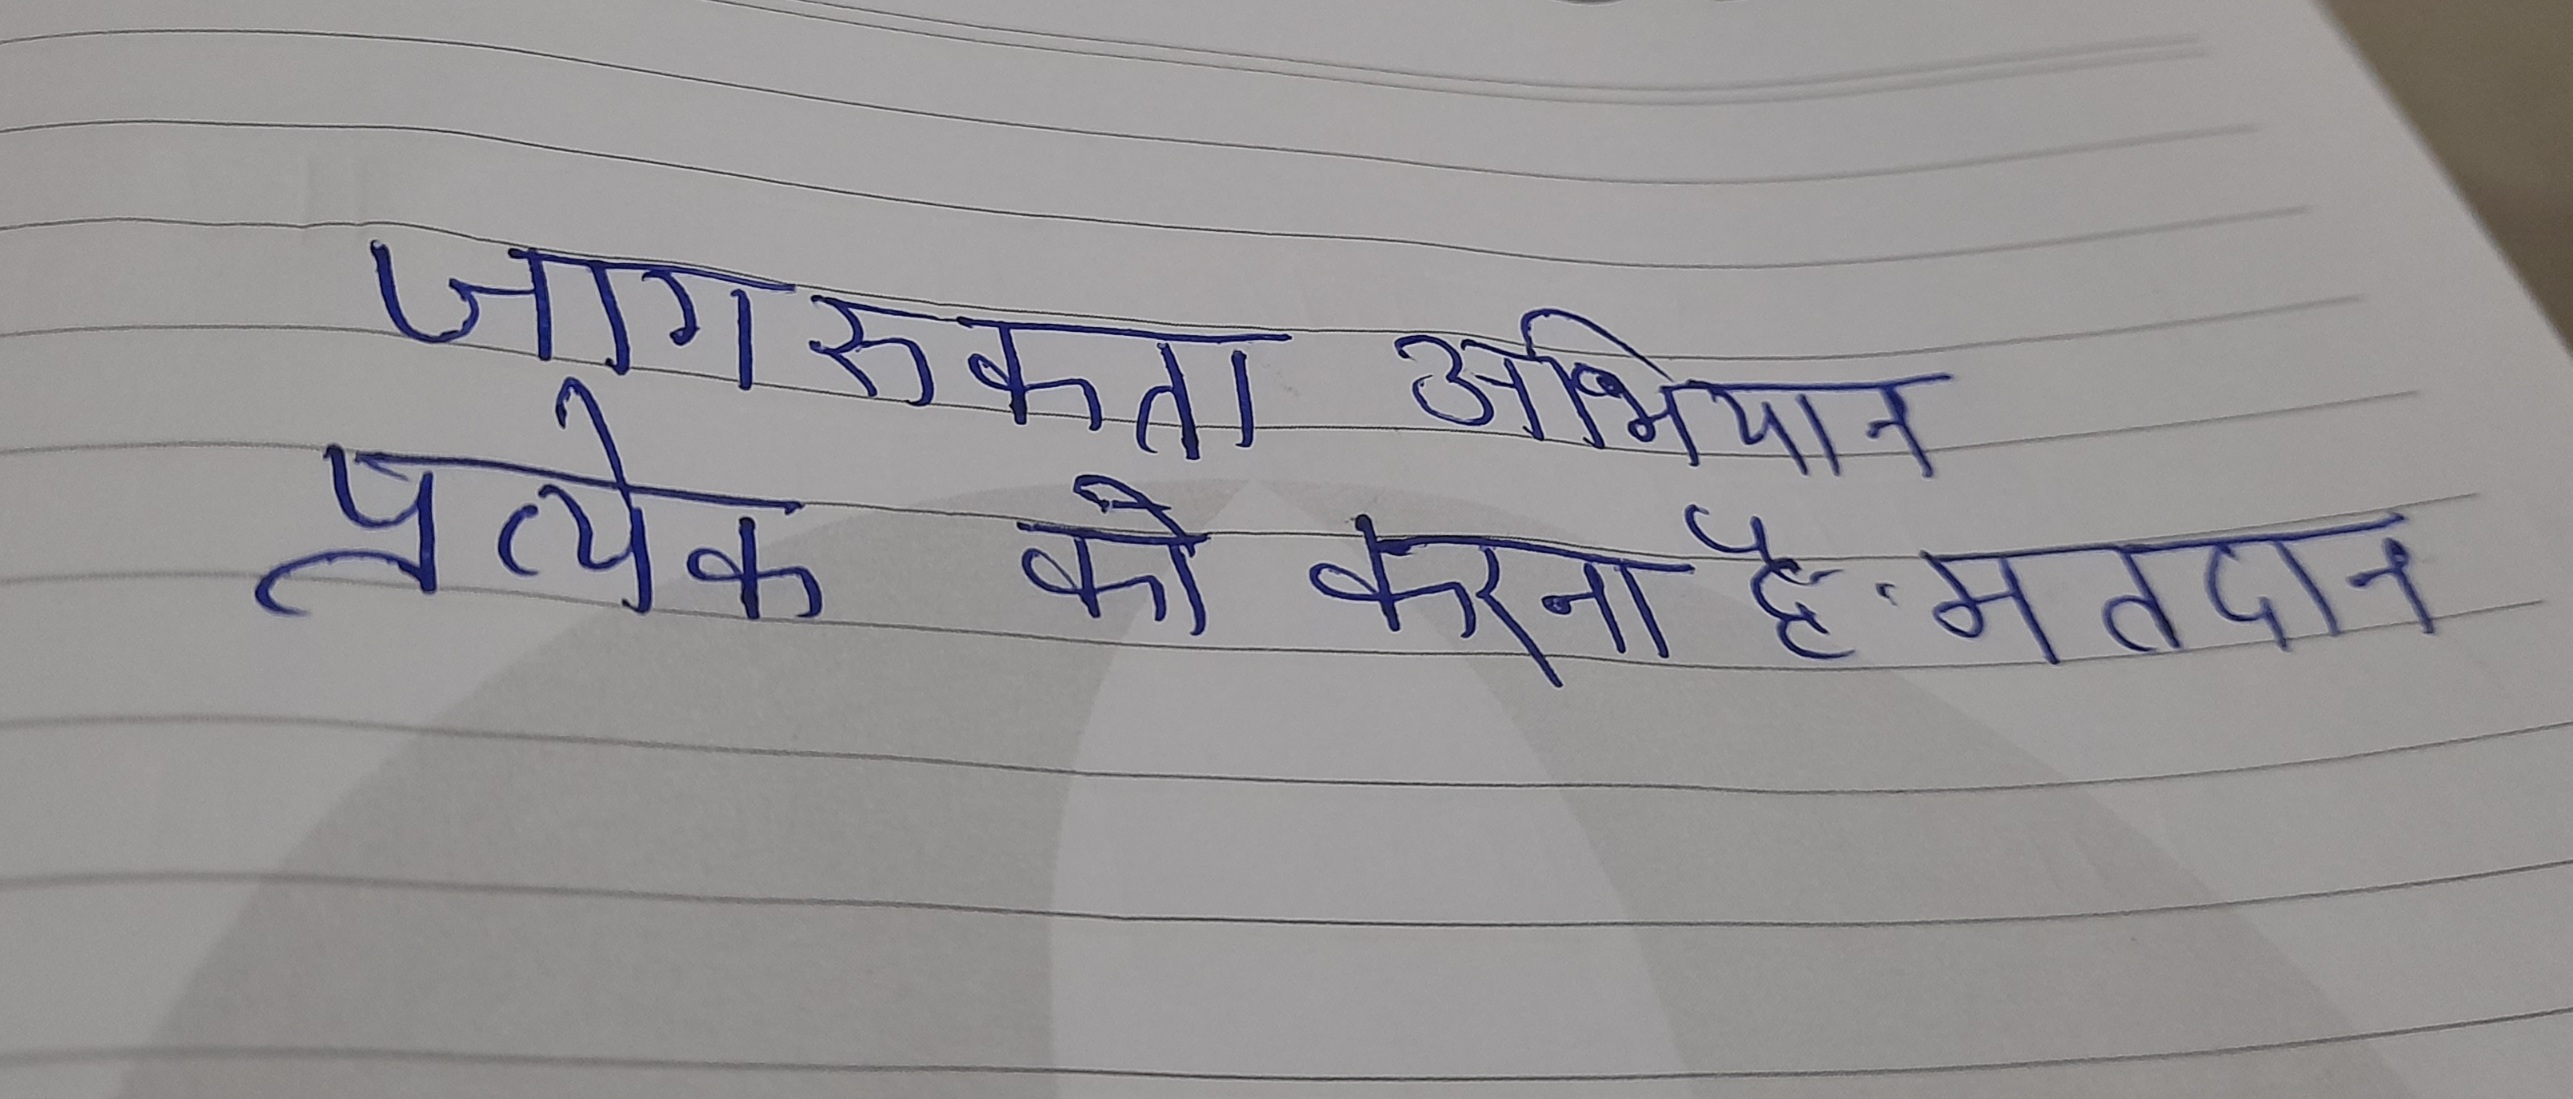 जागरुकता अभियान
प्रत्येक को करना है मतदान